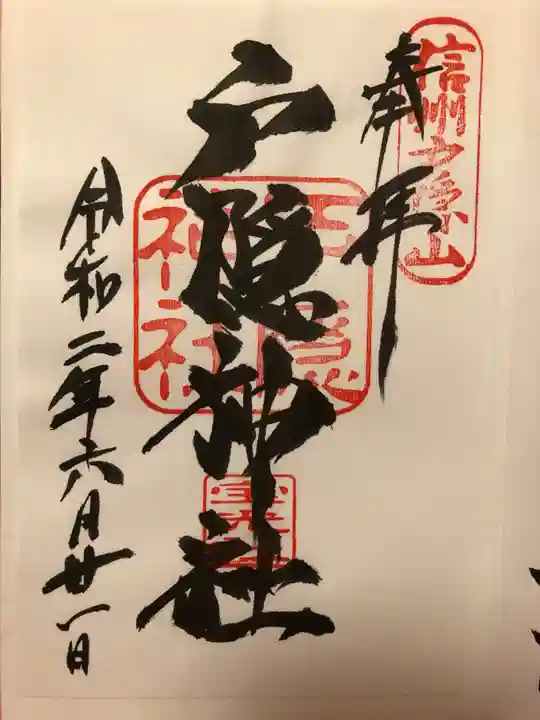 信州戸隠山
奉拝
戸隠神社
戸隠神社
令和二年六月廿一日